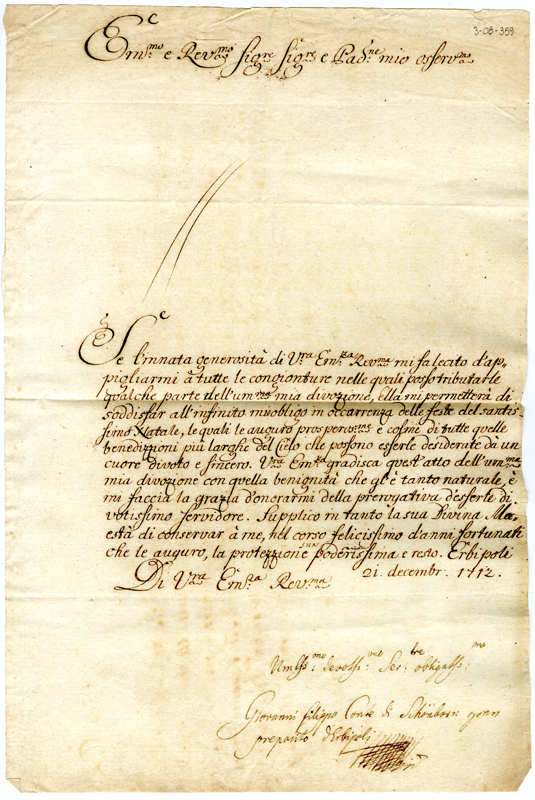 3-08-359
Em.mo e Rev.mo Sig.re Sig.re e Pad.ne mio osserv.mo
Se l'innata generosità di V.ra Em.za Rev.ma mi fa lecito d'ap,
pigliarmi à tutte le congionture nelle quali posso tributarle
qualche parte dell'um.ma mia divozione, Ella mi permetterà di
soddisfar all'infinito mio obligo in occorrenza delle feste del santis:
simo Natale, le quali le auguro prosperis.me e colme di tutte quelle
benedizzioni più larghe del Cielo che possono esserle desiderate dà un
cuore divoto e sincero. V.ra Em.za gradisca quest'atto dell'um.ma
mia divozione con quella benignità che gl'è tanto naturale, è
mi faccia la grazia d'onorarmi della prerogativa d'esserle di,
votissimo servidore. Supplico in tanto la sua Divina Ma,
està di conservar à me, nel corso felicissimo d'anni fortunati
che le auguro, la protezzione poderissima e resto. Erbipoli
21. decembr. 1712.
Di V.ra Em.za Rev.ma
Umiliss.mo devotiss.mo Ser.tre obligatiss.mo
Giovanni Filippo Conte di Schönborn gran
preposito d'Erbipoli